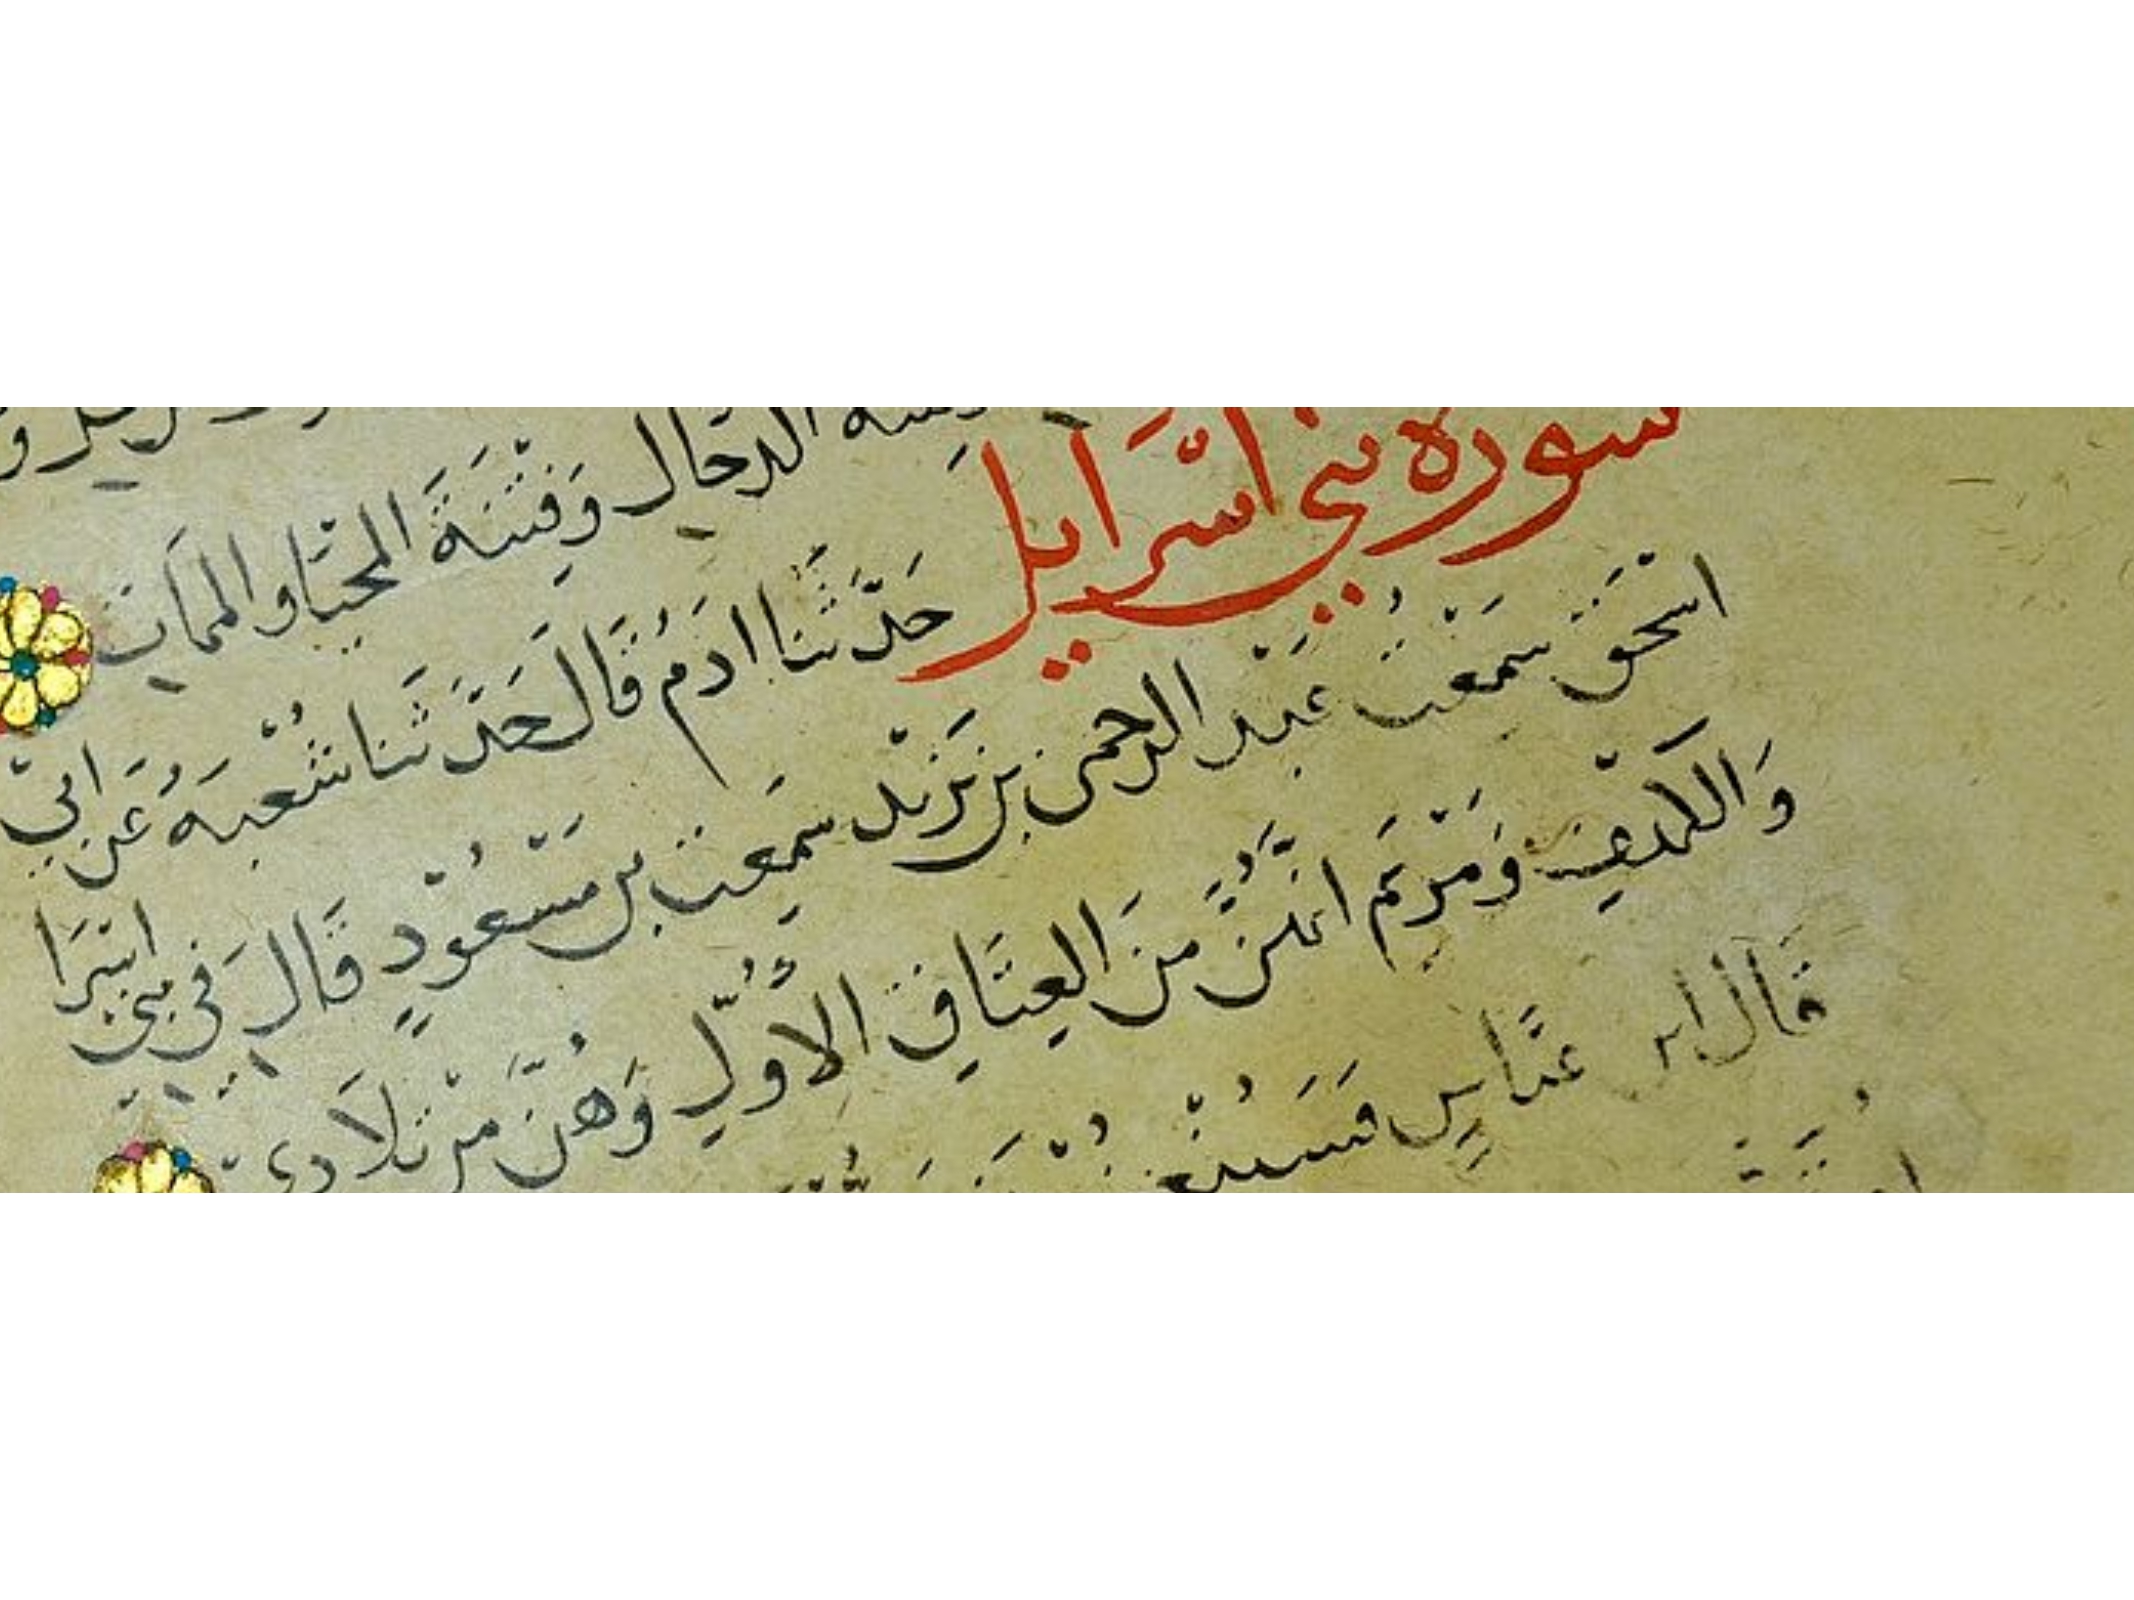 الدجال وَفِتْنَةَ المَحْيَا والمَمَاتِ
سورة بني اسْرَايل حَدّثَنا ادَمُ قَالَ حَدَّثَنا شُعْبَةُ عَن ابيْ
اسْحَقَ سَمِعْتُ عَبْدَ الرحمن بن يَزيْد سمِعت بن مَسْعُوْدٍ قَالَ في بني اسْرَا
وَالكهْفِ وَمَرْيَم انهُنَّ مِنَ العِتَاقِ الأُوَلِ وَهُنَّ مِنْ تلَادي
قَال ابن عبَّاسٍ فَسَيُنْغِ